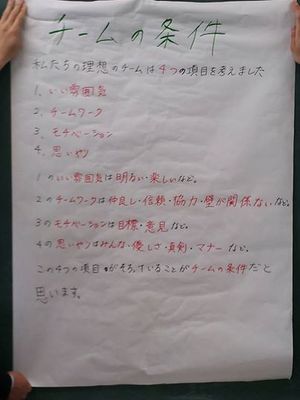 チームの条件
私たちの理想のチームは4つの項目を考えました
1、いい雰囲気
2、チームワーク
3、モチベーション
4、思いやり
1のいい雰囲気は明るい・楽しいなど。
2のチームワークは仲良し・信頼・協力・壁が関係ないなど。
3のモチベーションは目標・意見など。
4の思いやりはみんな優しさ・真剣・マナーなど。
この4つの項目がそろっていることがチームの条件だと
思います。